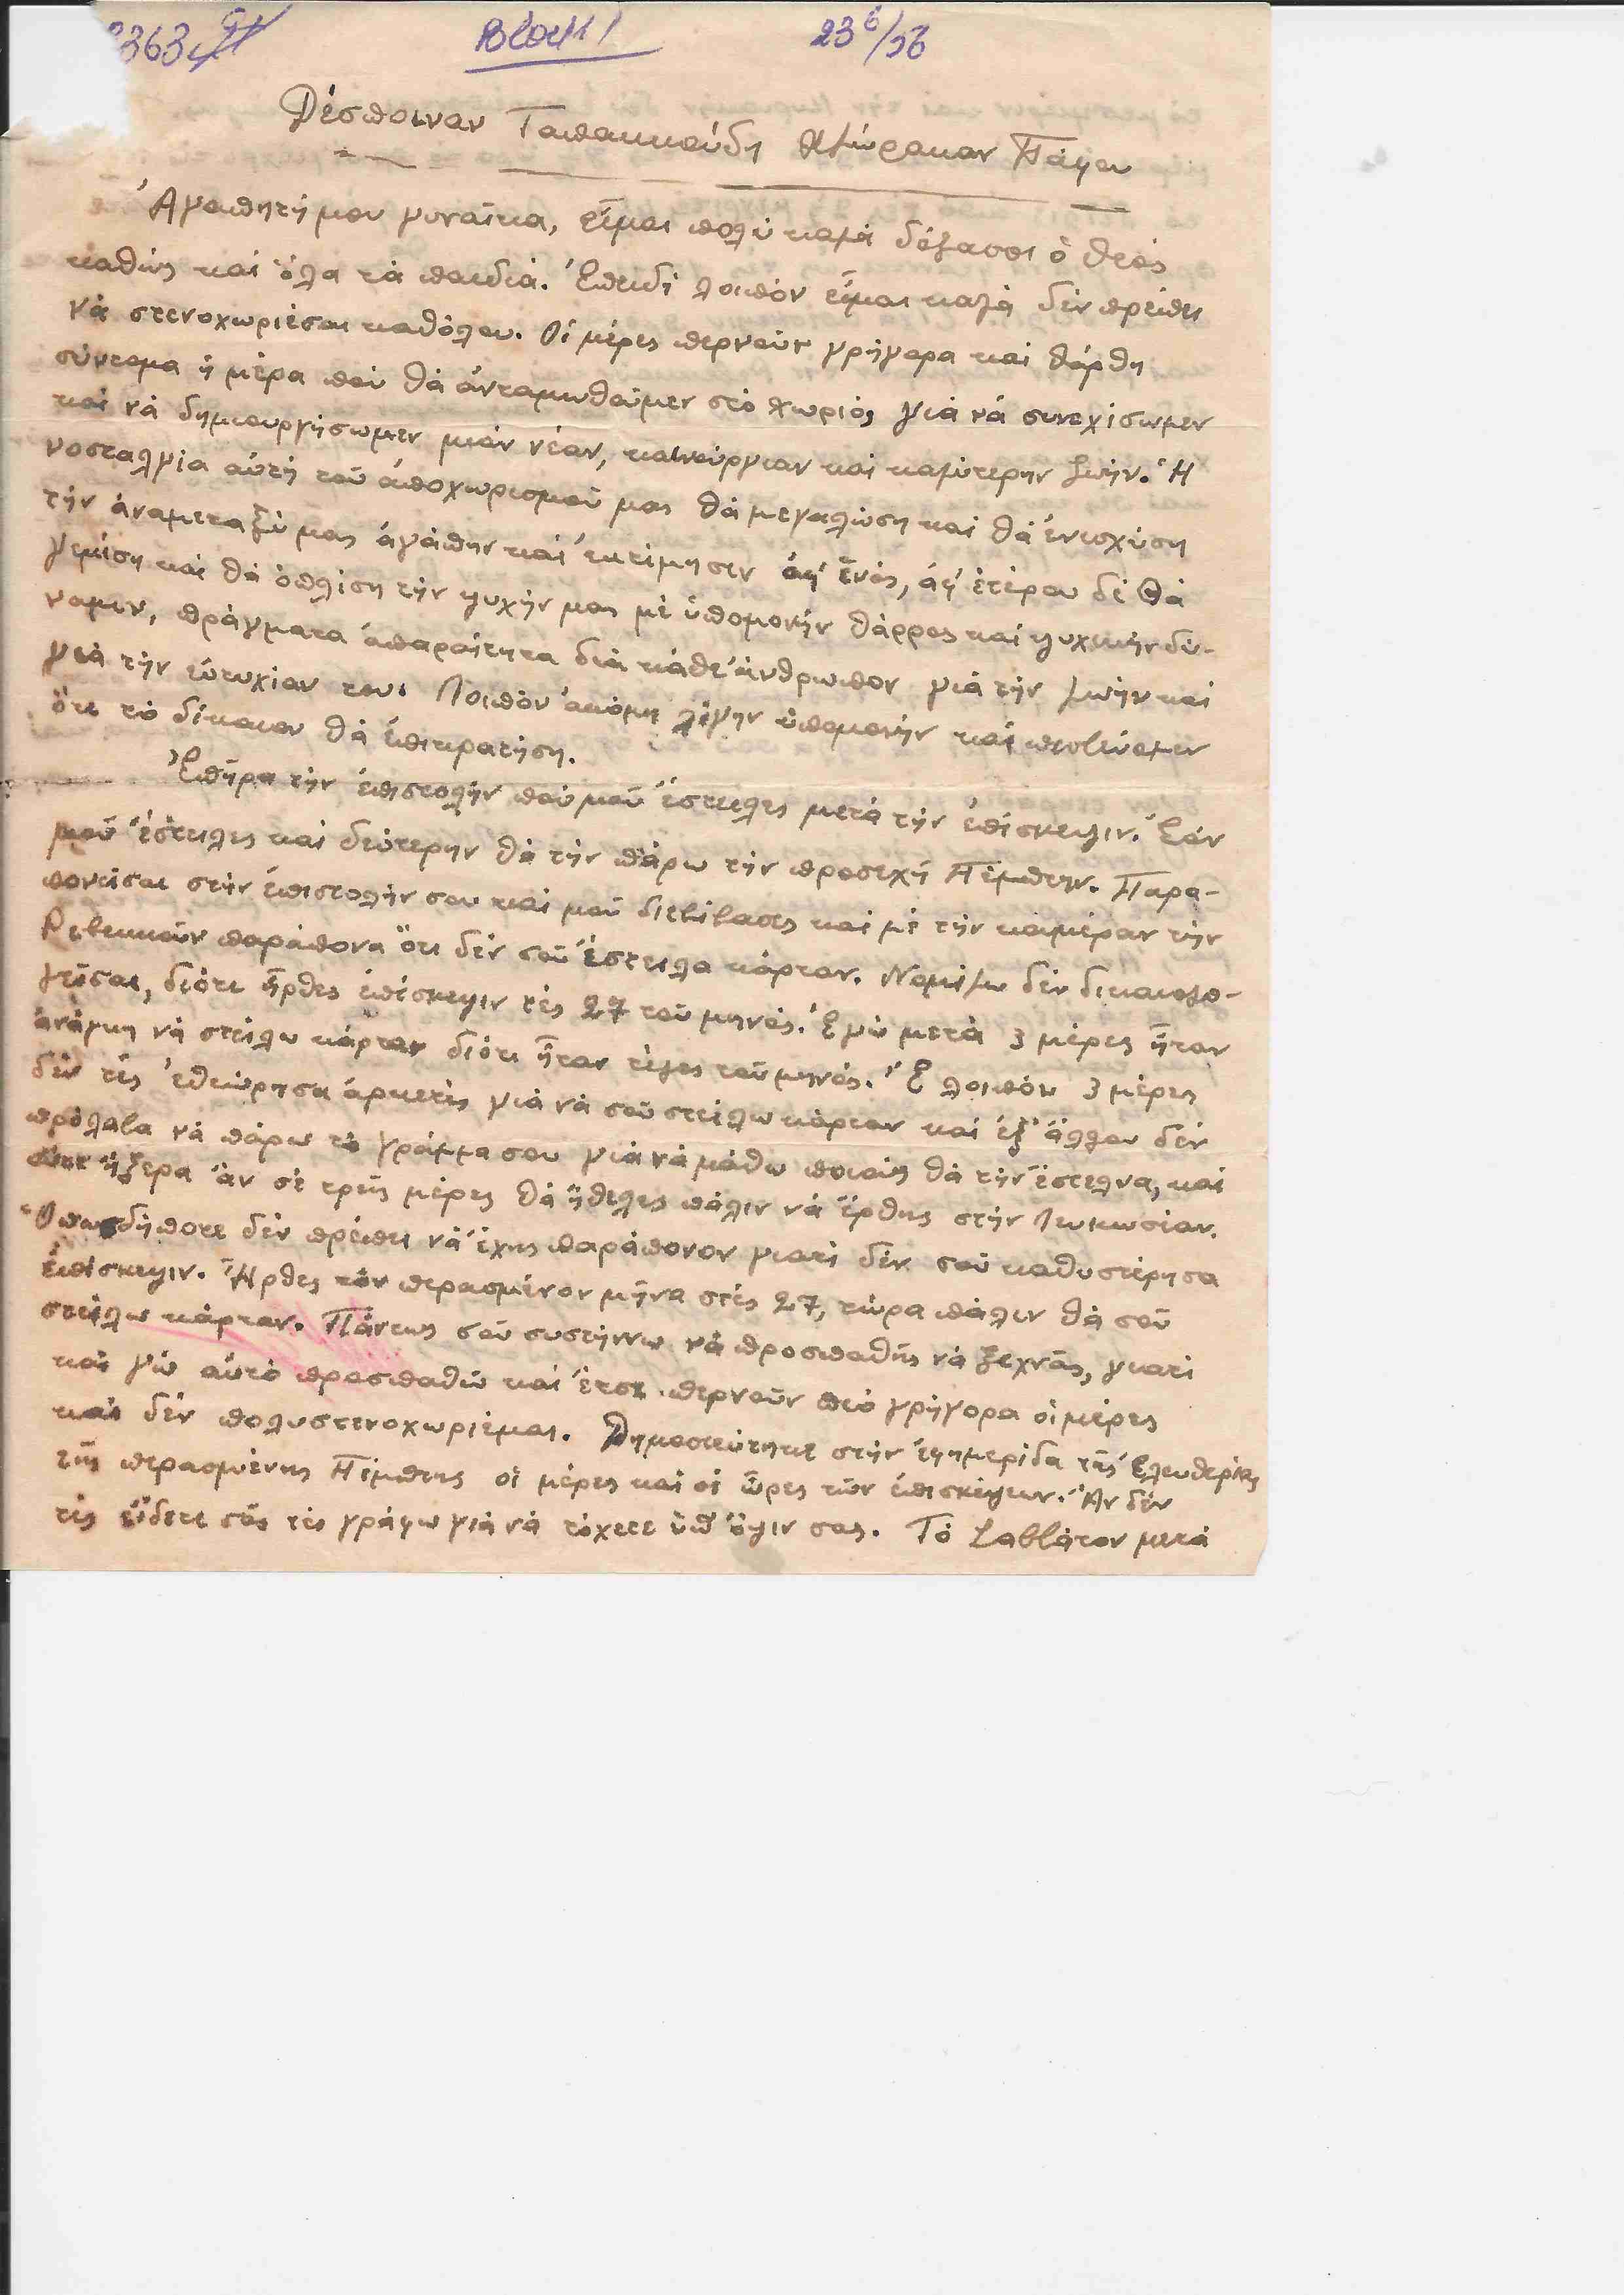 3363 Block 1 23 6/56
Δέσποιναν Ταπακκούδη Χλώρακαν Πάφου
Ἀγαπητή μου γυναῖκα, εἶμαι πολύ καλά δόξασοι ὁ Θεός
καθώς καί ὅλα τά παιδιά. Ἐπειδή λοιπόν εἶμαι καλά δέν πρέπει
νά στενοχωριέσαι καθόλου. Οἱ μέρες περνοῦν γρήγορα καί θάρθη
σύντομα ἡ μέρα πού θά ἀνταμωθοῦμεν στό χωριό, γιά νά συνεχίσωμεν
καί νά δημιουργήσωμεν μιάν νέαν, καινούργιαν καί καλύτερην ζωήν. Ἡ
νοσταλγία αὐτή τοῦ ἀποχωρισμοῦ μας θά μεγαλώση καί θά ἐνισχύση
τήν ἀναμεταξύ μας ἀγάπην καί ἐκτίμησιν ἀφ' ἑνός, ἀφ' ἑτέρου δέ θά
γεμίση καί θά ὁπλίση τήν ψυχήν μας μέ ὑπομονήν θάρρος καί ψυχικήν δύ-
ναμιν, πράγματα ἀπαραίτητα διά κάθε ἄνθρωπον γιά τήν ζωήν καί
γιά τήν εὐτυχίαν του. Λοιπόν ἀκόμη λίγην ὑπομονήν καί πιστεύομεν
ὅτι τό δίκαιον θά ἐπικρατήση.
Ἐπῆρα τήν ἐπιστολήν πού μοῦ ἔστειλες μετά τήν ἐπίσκεψιν. Ἐάν
μοῦ ἔστειλες καί δεύτερην θά τήν πάρω τήν προσεχῆ Πέμπτην. Παρα-
πονεῖσαι στήν ἐπιστολήν σου καί μοῦ διεβίβασες καί μέ τήν κουμέραν τήν
Ρεβεκκοῦν παράπονα ὅτι δέν σοῦ ἔστειλα κάρταν. Νομίζω δέν δικαιολο-
γεῖσαι, διότι ἦρθες ἐπίσκεψιν τές 27 τοῦ μηνός. Ἐγώ μετά 3 μέρες ἦταν
ἀνάγκη νά στείλω κάρταν διότι ἦταν τέλος τοῦ μηνός. Ἔ λοιπόν 3 μέρες
δέν τές ἐθεώρησα ἀρκετές γιά νά σοῦ στείλω κάρταν καί ἐξ' ἄλλου δέν
πρόλαβα νά πάρω τό γράμμα σου γιά νά μάθω ποιούς θά τήν ἔστελνα, καί
οὔτε ἤξερα ἄν σέ τρεῖς μέρες θά ἤθελες πάλιν νά ἔρθης στήν Λευκωσίαν.
Ὁπωσδήποτε δέν πρέπει νά ἔχης παράπονον γιατί δέν σοῦ καθυστέρησα
ἐπίσκεψιν. Ἦρθες τόν περασμένον μῆνα στές 27, τώρα πάλιν θά σοῦ
στείλω κάρταν. Πάντως σοῦ συστήννω νά προσπαθῆς νά ξεχνᾶς, γιατί
καί γώ αὐτό προσπαθῶ καί ἔτσι περνοῦν πιό γρήγορα οἱ μέρες
καί δέν πολυστενοχωριέμαι. Δημοσιεύτηκε στήν ἐφημερίδα τῆς Ἐλευθερίας
τῆς περασμένης Πέμπτης οἱ μέρες καί οἱ ὧρες τῶν ἐπισκέψεων. Ἄν δέν
τές εἴδετε σᾶς τές γράφω γιά νά τόχετε ὑπ' ὄψιν σας. Τό Σαββάτον μετά